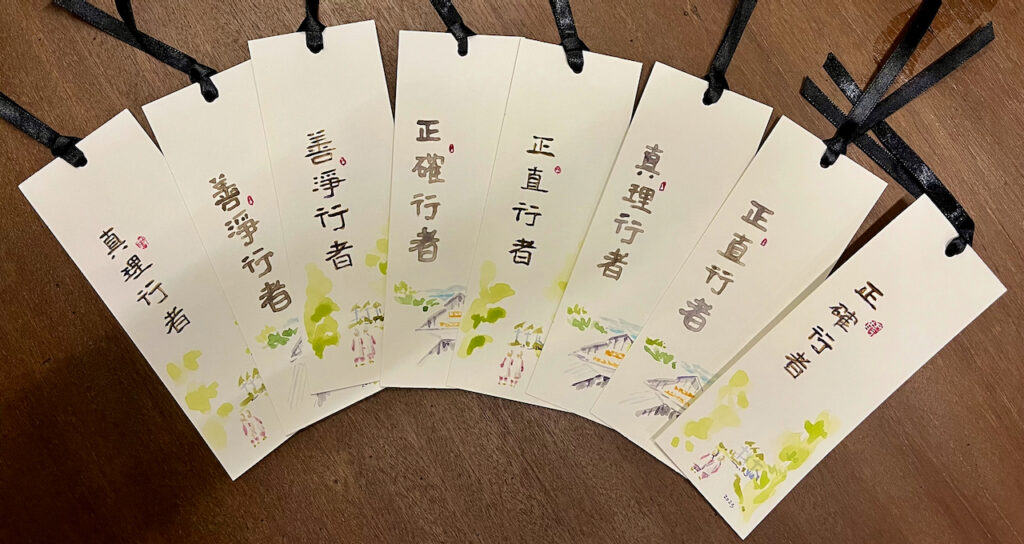 真理行者
善淨行者
善淨行者
正確行者
正直行者
真理行者
正直行者
正確行者
2025